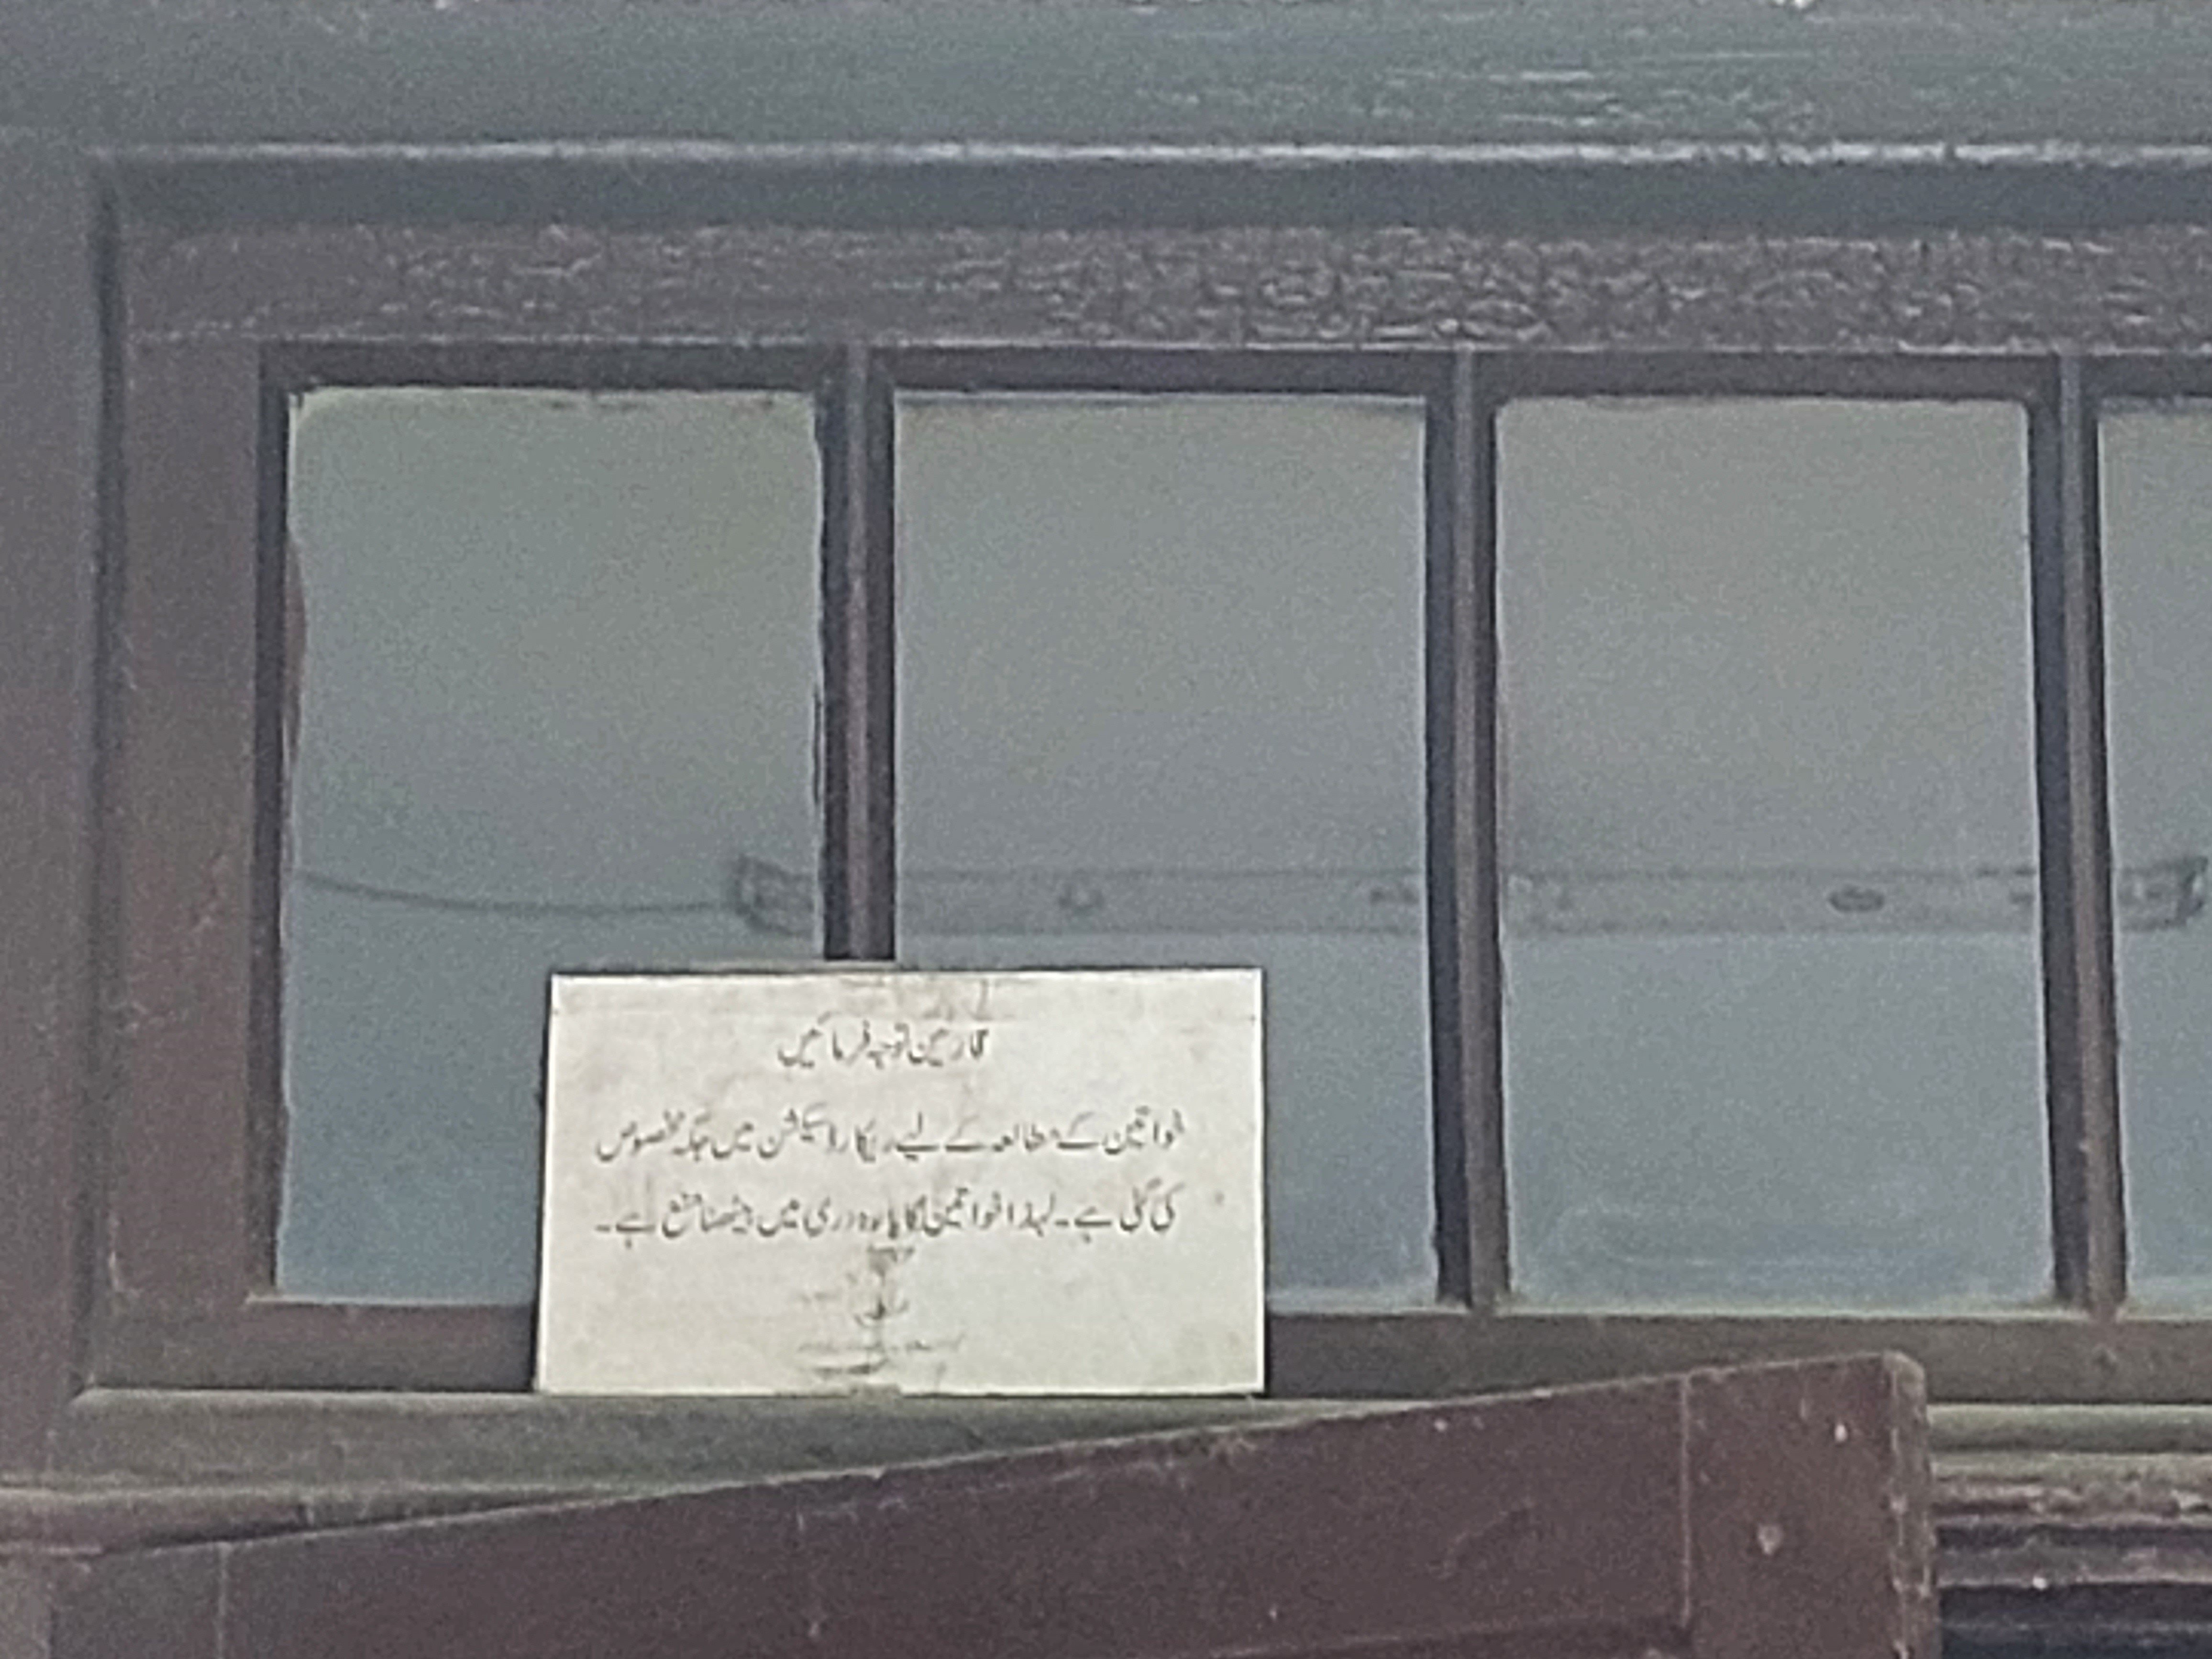 قارئین توجہ فرمائیں
خواتین کے مطالعہ کے لیے ریکارڈ سیکشن میں جگہ مخصوص
کی گئی ہے۔ لہذا خواتین کا بارہ دری میں بیٹھنا منع ہے۔